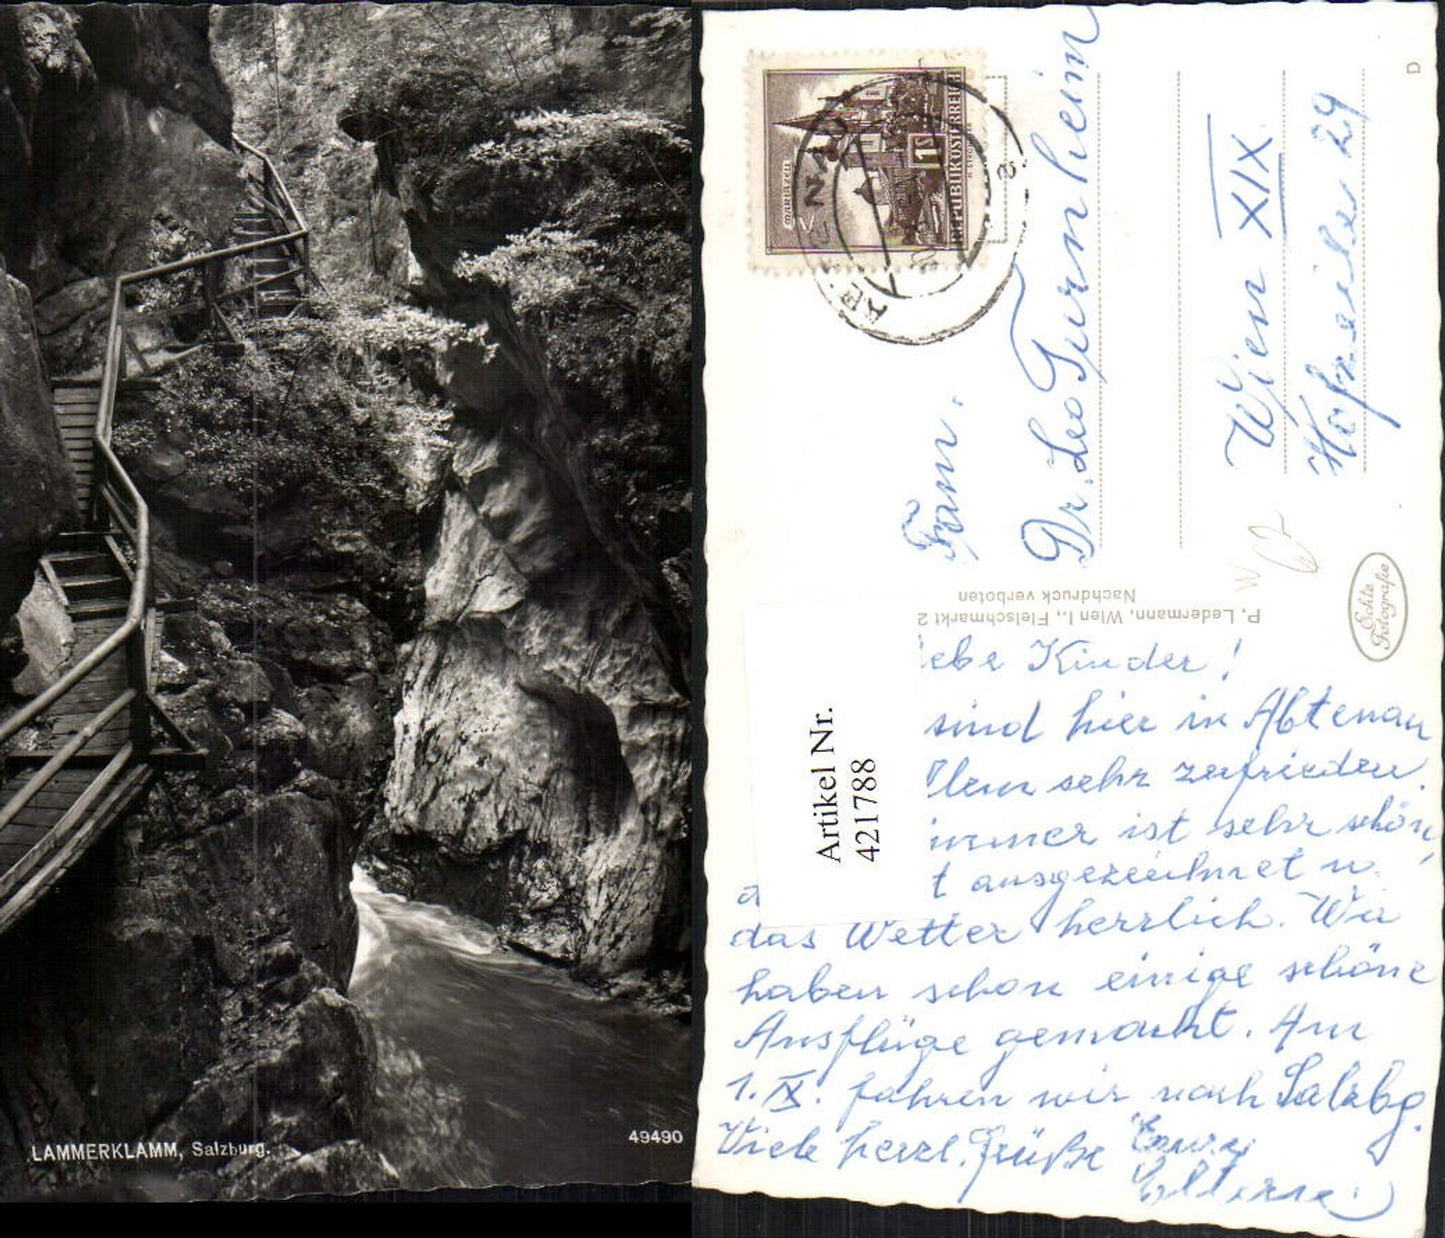 LAMMERKLAMM, Salzburg.
49490
MARIAZELL
1S
REPUBLIK ÖSTERREICH
D
Fam.
Dr. Leo Turnheim
Wien XIX
Hofzeile 29
P. Ledermann, Wien I., Fleischmarkt 2
Nachdruck verboten
Echte
Fotografie
Artikel Nr.
421788
iebe Kinder!
sind hier in Abtenau
llem sehr zufrieden.
immer ist sehr schön,
t ausgezeichnet u.
das Wetter herrlich. Wir
haben schon einige schöne
Ausflüge gemacht. Am
1. IX. fahren wir nach Salzbg.
Viele herzl. Grüße Eure
Eltern